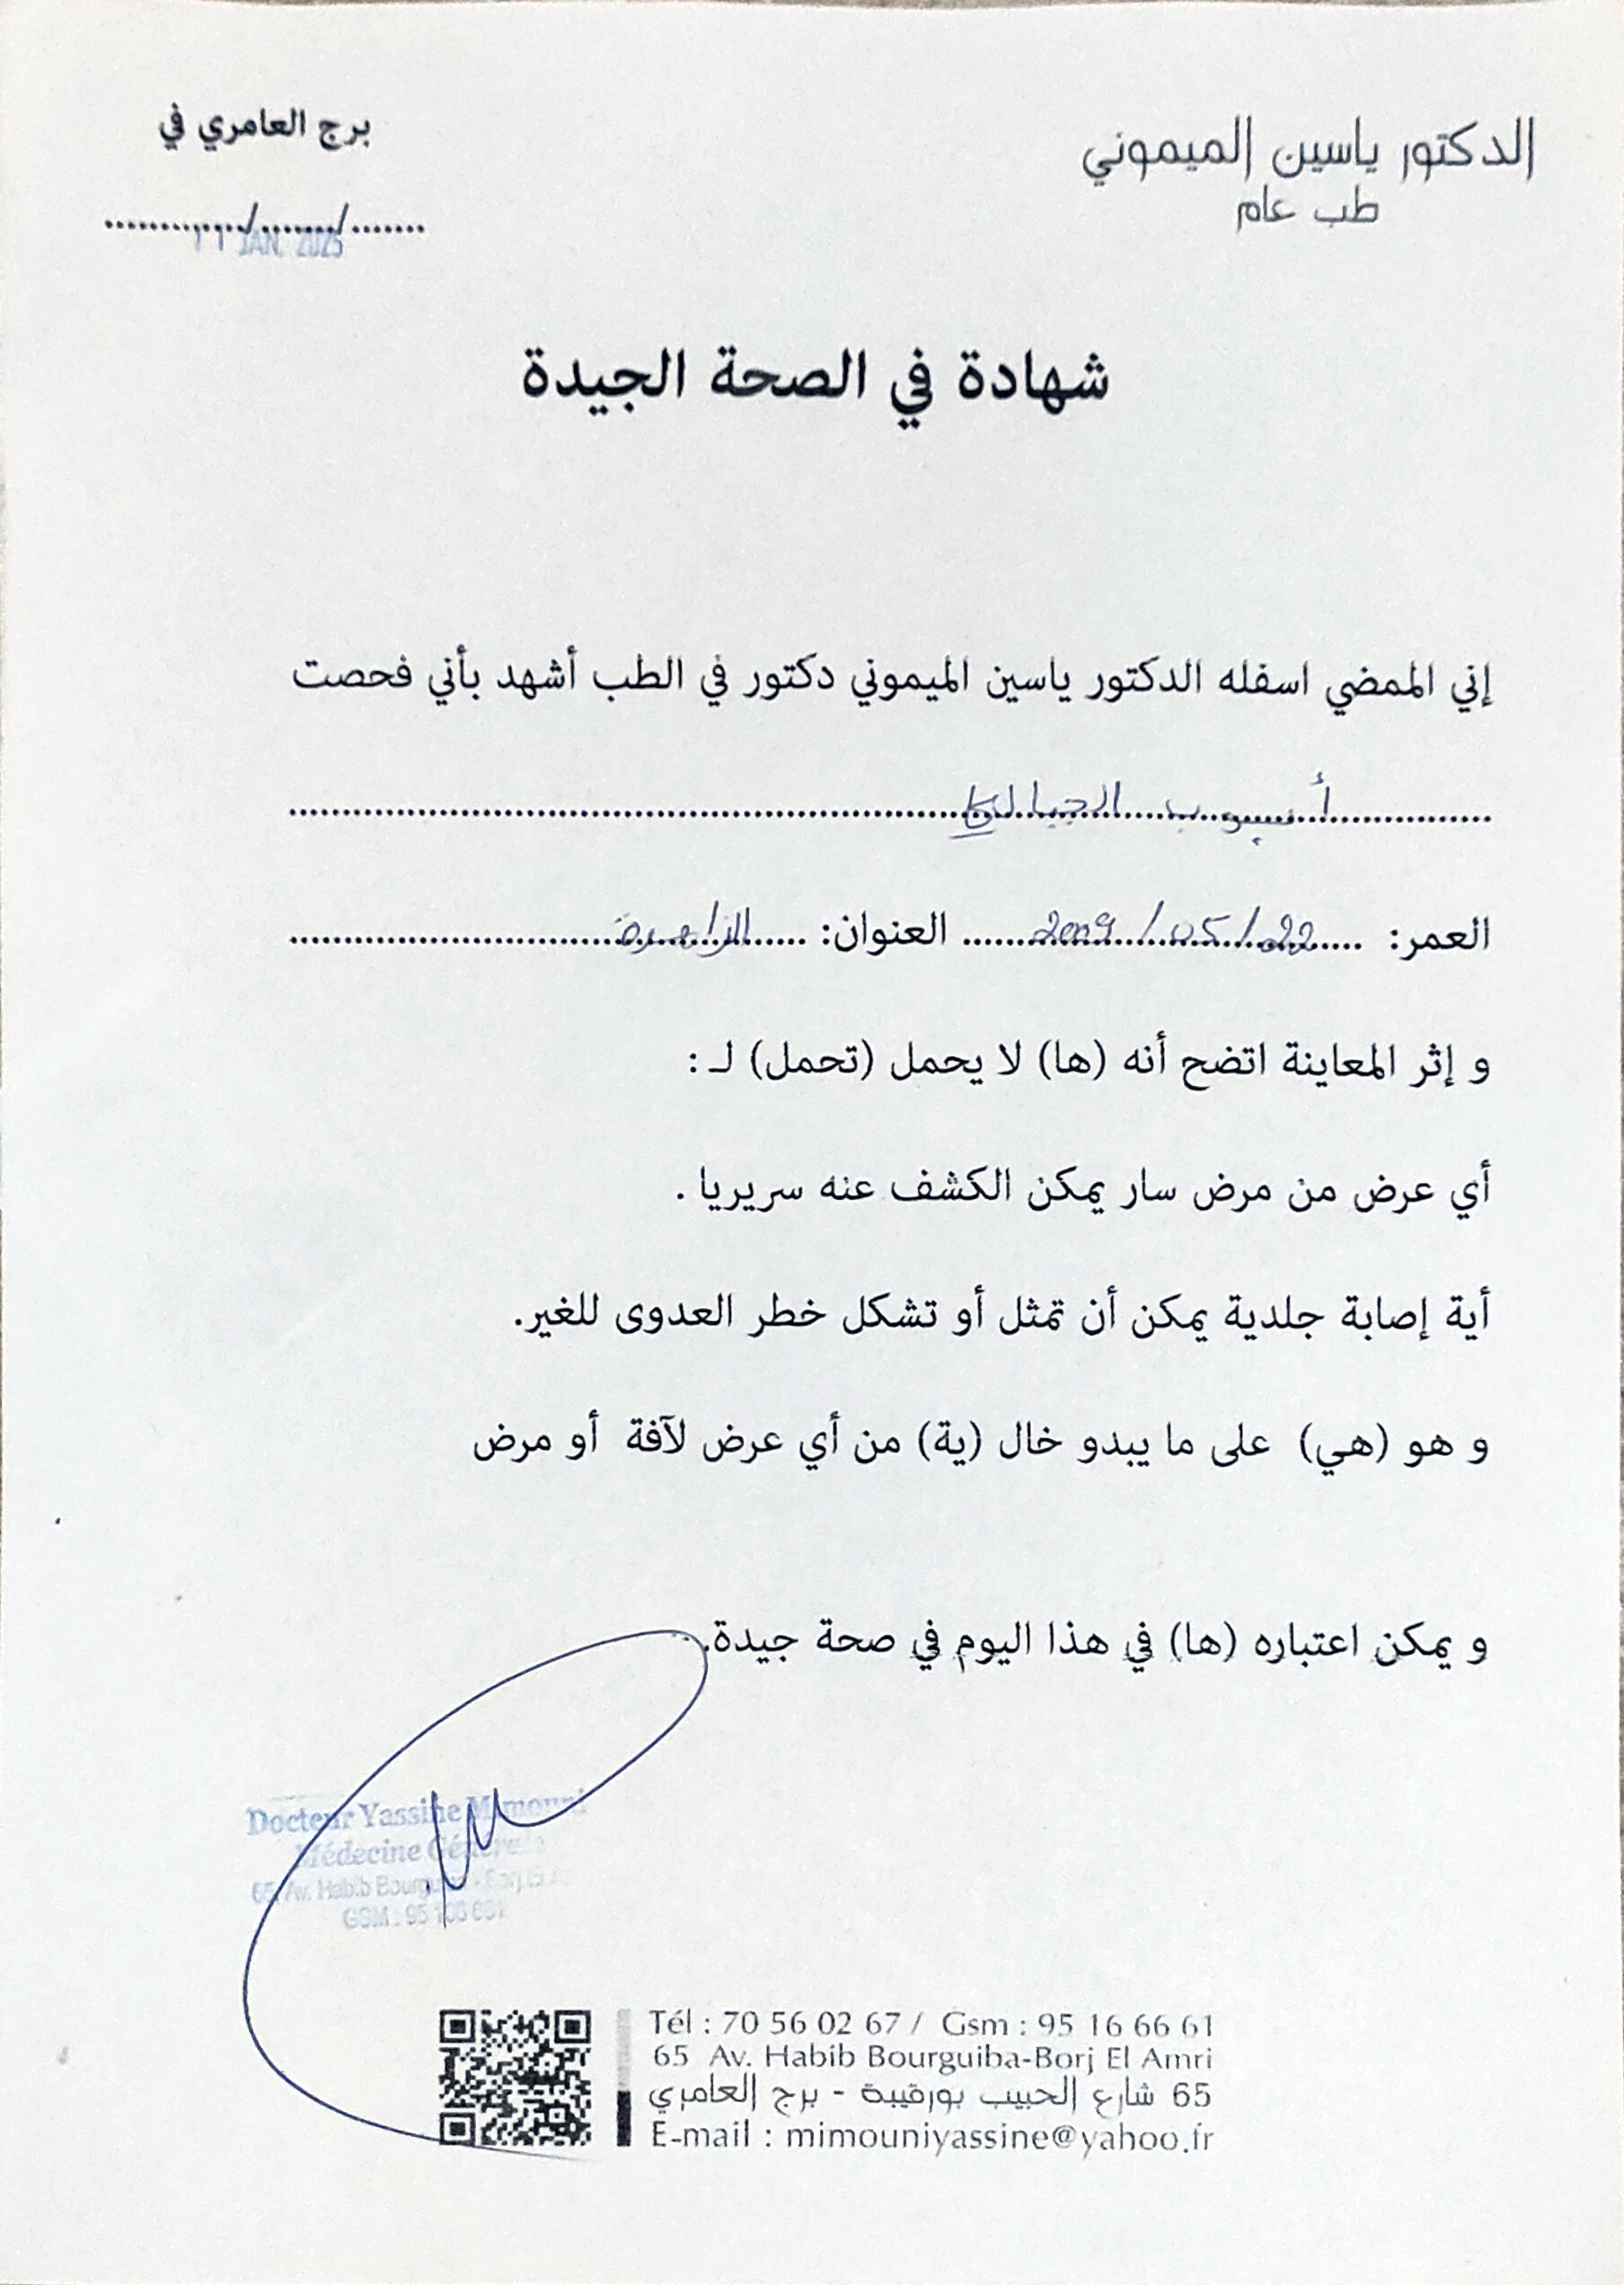 الدكتور ياسين الميموني
طب عام
برج العامري في
......./......./............
11 JAN. 2025
شهادة في الصحة الجيدة
إني الممضي اسفله الدكتور ياسين الميموني دكتور في الطب أشهد بأني فحصت
الجبالي
العمر: 22/05/2009 العنوان:
و إثر المعاينة اتضح أنه (ها) لا يحمل (تحمل) لـ :
أي عرض من مرض سار يمكن الكشف عنه سريريا .
أية إصابة جلدية يمكن أن تمثل أو تشكل خطر العدوى للغير.
و هو (هي) على ما يبدو خال (ية) من أي عرض لآفة أو مرض
و يمكن اعتباره (ها) في هذا اليوم في صحة جيدة.
Docteur Yassine Mimouni
Médecine Générale
65, Av. Habib Bourguiba - Borj El
GSM : 95
Tél : 70 56 02 67 / Gsm : 95 16 66 61
65 Av. Habib Bourguiba-Borj El Amri
65 شارع الحبيب بورقيبة - برج العامري
E-mail : mimouniyassine@yahoo.fr